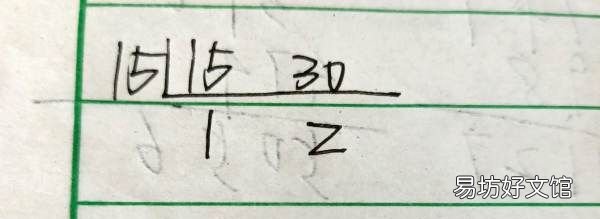 15 15 30
1 2
易坊好文馆